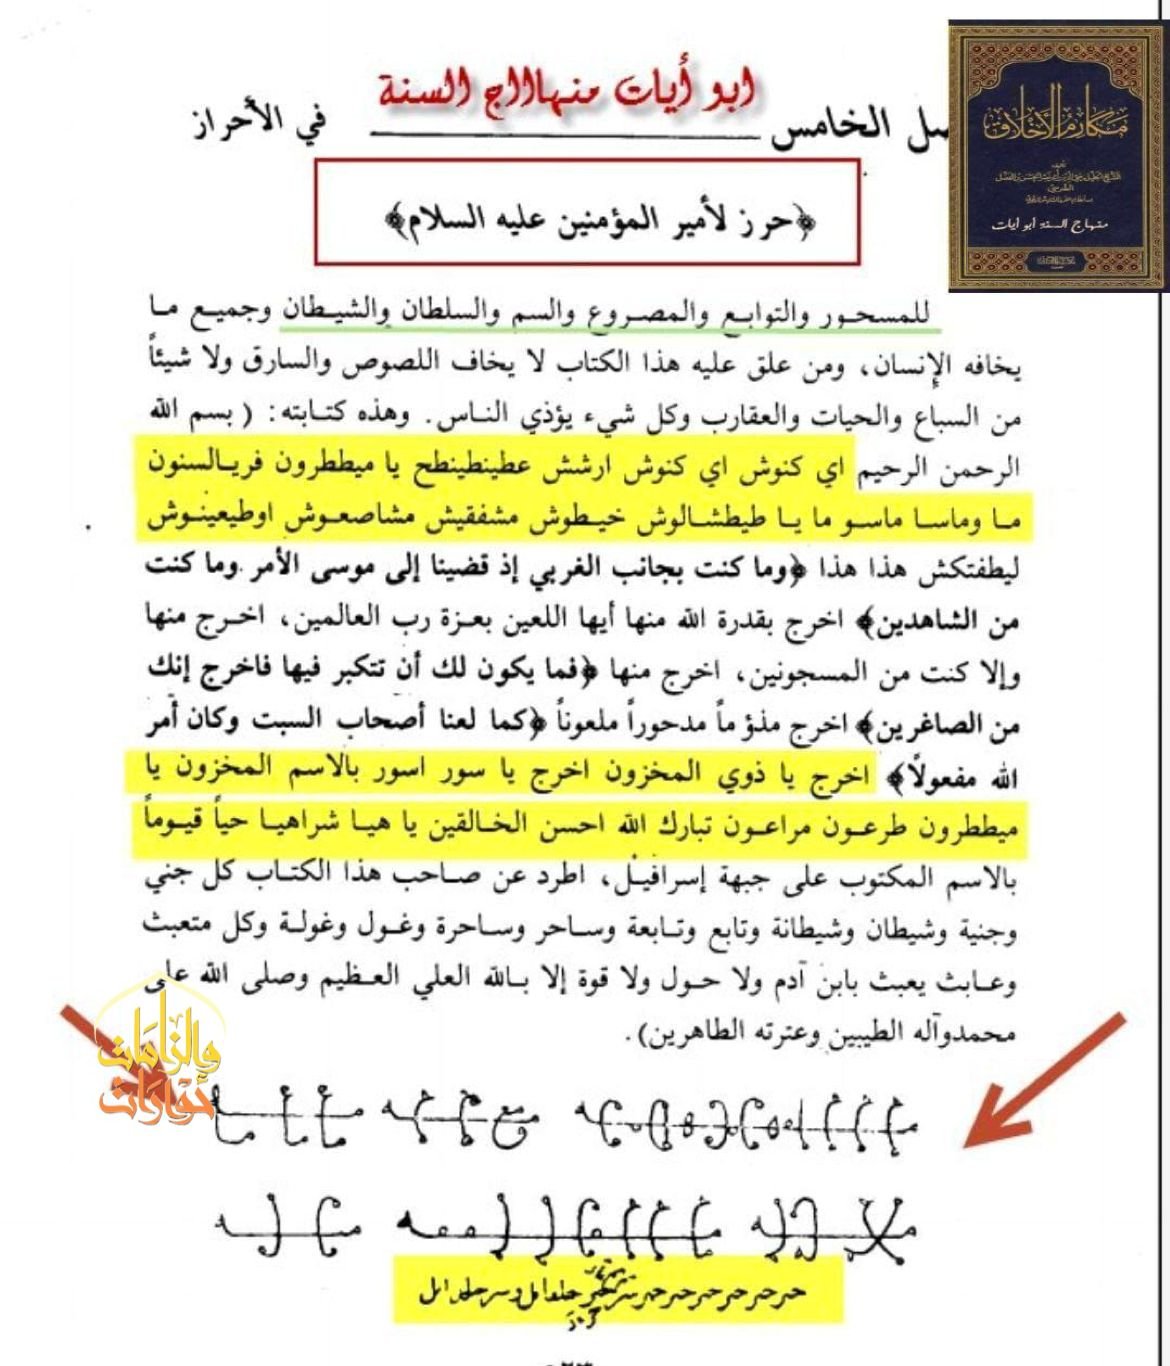 ابو أيات منهاااج السنة
صل الخامس في الأحراز
مكارم الأخلاق
منهاج السنة أبو أيات
﴿حرز لأمير المؤمنين عليه السلام﴾
للمسحور والتوابع والمصروع والسم والسلطان والشيطان وجميع ما
يخافه الإنسان، ومن علق عليه هذا الكتاب لا يخاف اللصوص والسارق ولا شيئاً
من السباع والحيات والعقارب وكل شيء يؤذي الناس. وهذه كتابته: (بسم الله
الرحمن الرحيم اي كنوش اي كنوش ارشش عطينطينطح يا ميططرون فريالسنون
ما وماسا ماسو ما يا طيطشالوش خيطوش مشفقيش مشاصعوش اوطيعينوش
ليطفتكش هذا هذا ﴿وما كنت بجانب الغربي إذ قضينا إلى موسى الأمر وما كنت
من الشاهدين﴾ اخرج بقدرة الله منها أيها اللعين بعزة رب العالمين، اخرج منها
وإلا كنت من المسجونين، اخرج منها ﴿فما يكون لك أن تتكبر فيها فاخرج إنك
من الصاغرين﴾ اخرج مذؤماً مدحوراً ملعوناً ﴿كما لعنا أصحاب السبت وكان أمر
الله مفعولاً﴾ اخرج يا ذوي المخزون اخرج يا سور اسور بالاسم المخزون يا
ميططرون طرعون مراعون تبارك الله احسن الخالقين يا هيا شراهيا حياً قيوماً
بالاسم المكتوب على جبهة إسرافيل، اطرد عن صاحب هذا الكتاب كل جني
وجنية وشيطان وشيطانة وتابع وتابعة وساحر وساحرة وغول وغولة وكل متعبث
وعابث يعبث بابن آدم ولا حول ولا قوة إلا بالله العلي العظيم وصلى الله على
محمدوآله الطيبين وعترته الطاهرين).
والزامات
حوارات